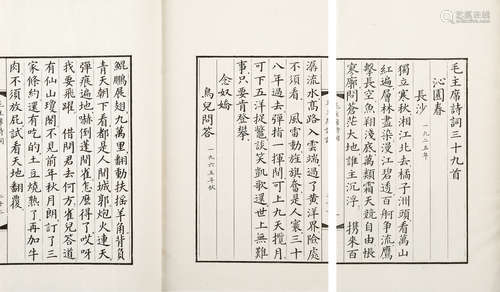 毛主席詩詞三十九首
沁園春
長沙 一九二五年
獨立寒秋湘江北去橘子洲頭看萬山
紅遍層林盡染漫江碧透百舸爭流鷹
擊長空魚翔淺底萬類霜天競自由悵
寥廓問蒼茫大地誰主沉浮 携來百
潺流水高路入雲端過了黃洋界險處
不須看 風雷動旌旗奮是人寰三十
八年過去彈指一揮間可上九天攬月
可下五洋捉鱉談笑凱歌還世上無難
事只要肯登攀
念奴嬌
鳥兒問答 一九六五年秋
鯤鵬展翅九萬里翻動扶摇羊角背負
青天朝下看都是人間城郭炮火連天
彈痕遍地嚇倒蓬間雀怎麼得了哎呀
我要飛躍 借問君去何方雀兒答道
有仙山瓊閣不見前年秋月朗訂了三
家條約還有吃的土豆燒熟了再加牛
肉不須放屁試看天地翻覆